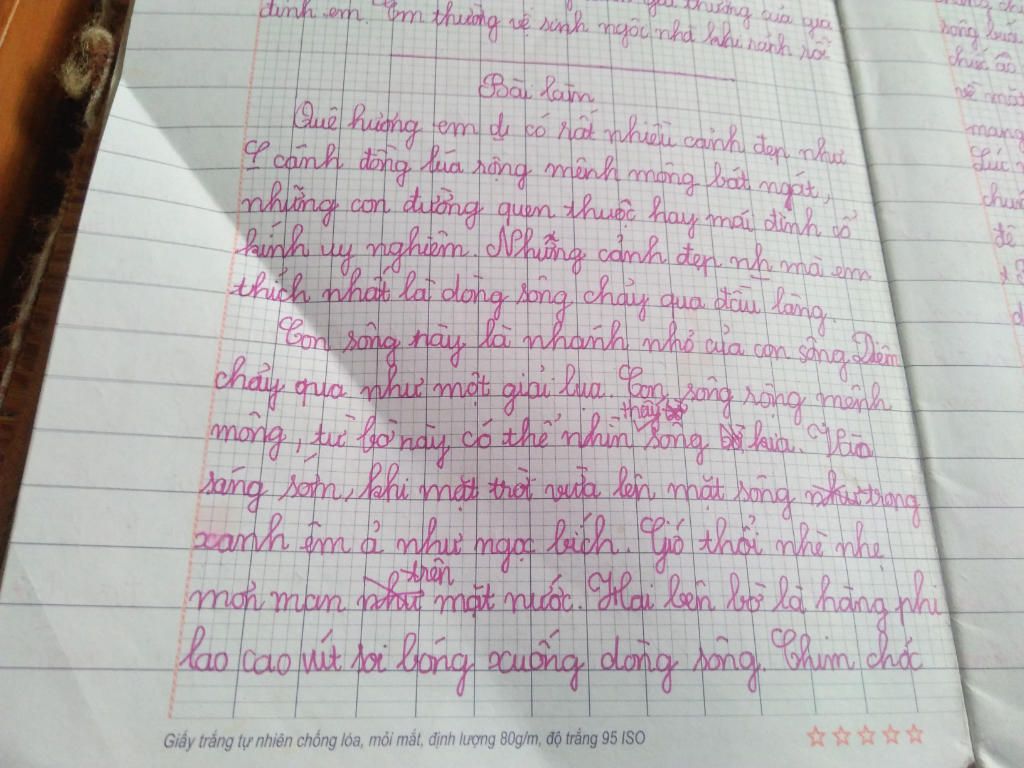 thương của gia
đình em. Em thường vệ sinh ngôi nhà
Bài làm
Quê hương em có rất nhiều cảnh đẹp như
cánh đồng lúa rộng mênh mông bát ngát,
những con đường quen thuộc hay mái đình cổ
kính uy nghiêm. Những cảnh đẹp nh mà em
thích nhất là dòng sông chảy qua đầu làng.
Con sông này là nhánh nhỏ của con sông Diêm
chảy qua như một giải lụa. Con sông rộng mênh
mông, từ bờ này có thể nhìn thấy sông kia. Vào
sáng sớm, khi mặt trời vừa lên mặt sông trong
xanh êm ả như ngọc bích. Gió thổi nhè nhẹ
mơn man trên mặt nước. Hai bên bờ là hàng phi
lao cao vút soi bóng xuống dòng sông. Chim chóc
Giấy trắng tự nhiên chống lóa, mỏi mắt, định lượng 80g/m, độ trắng 95 ISO